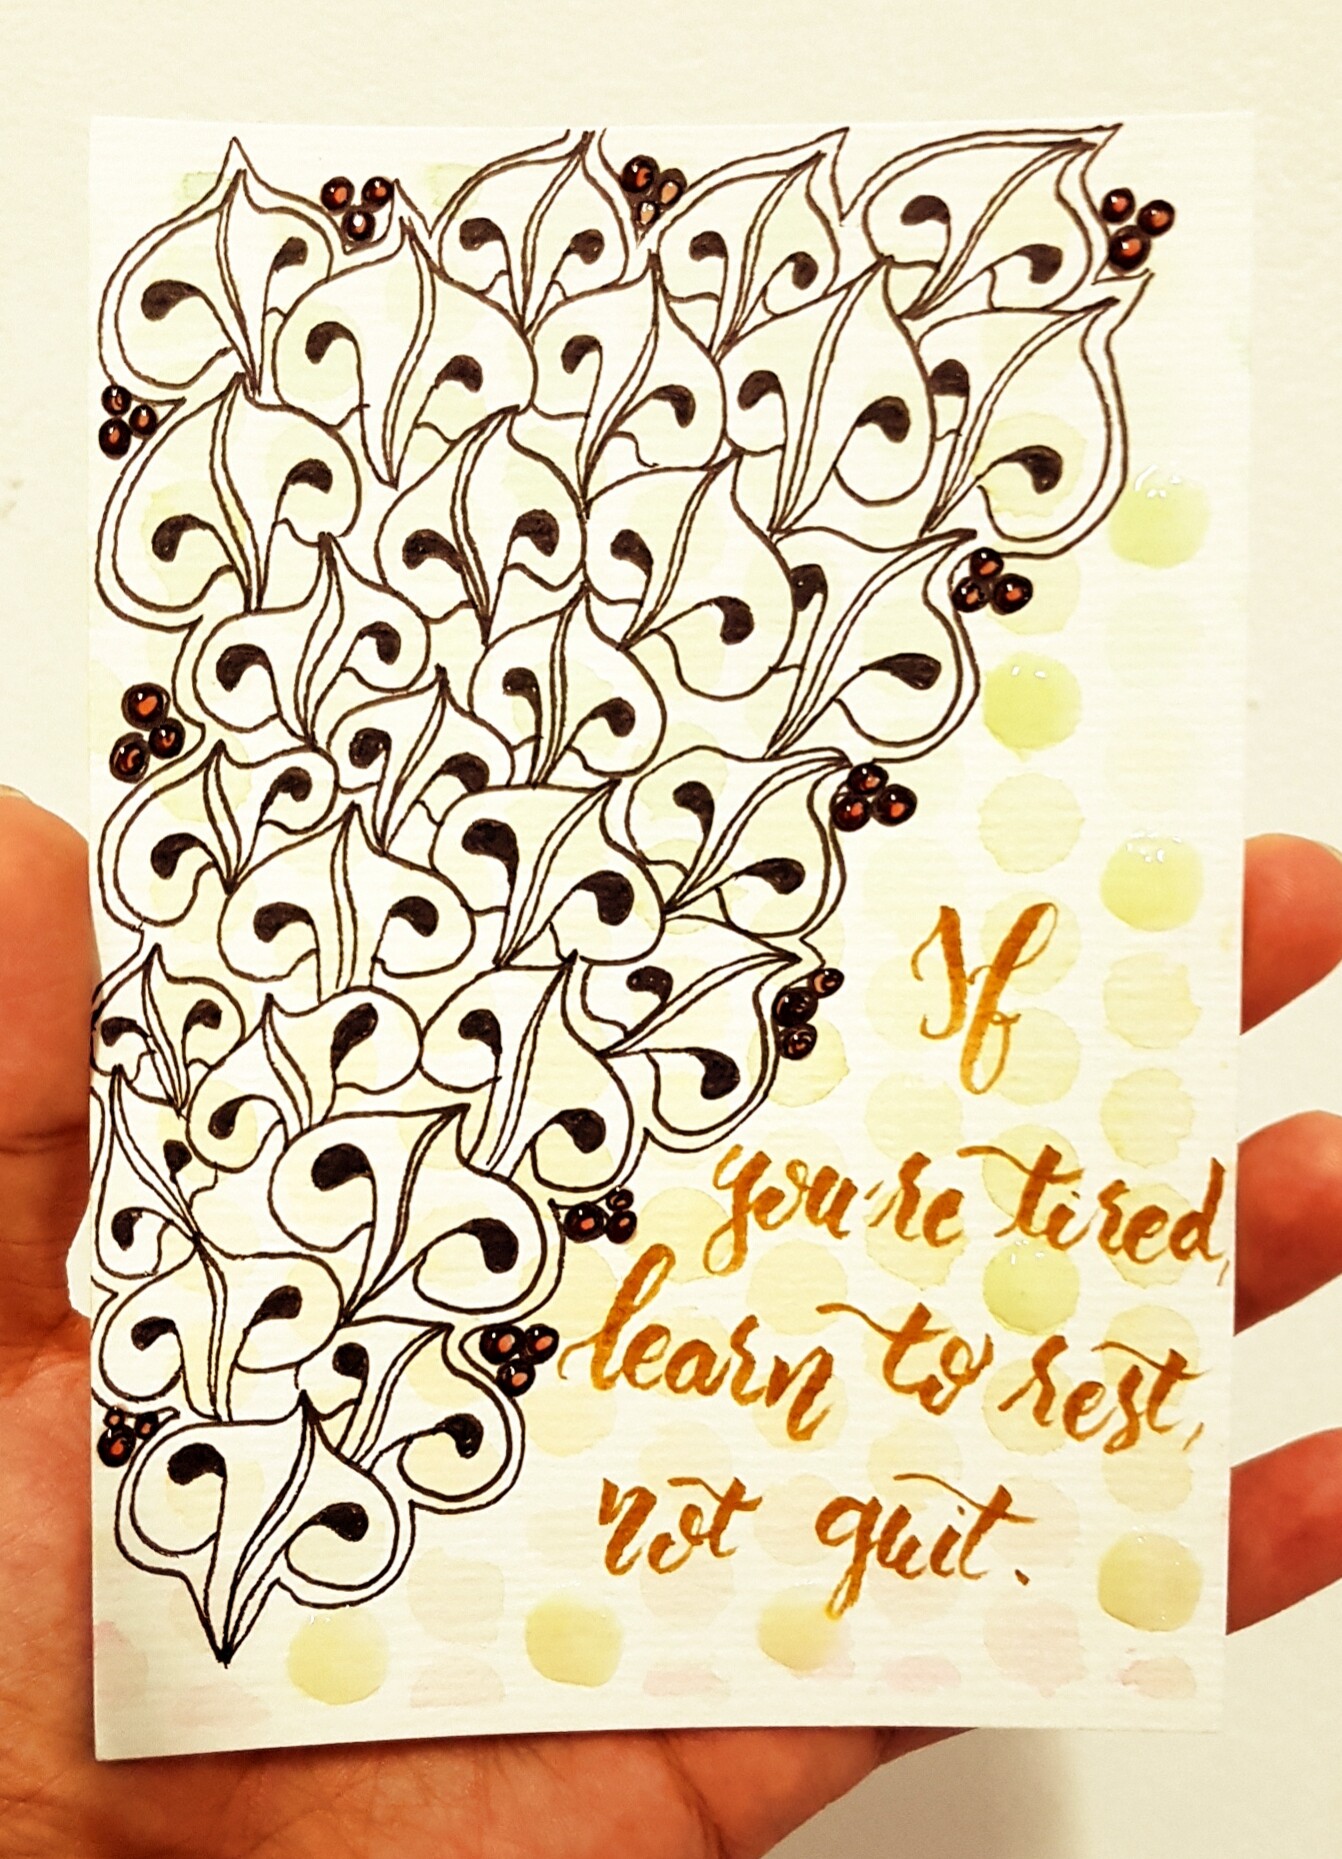 If
you're tired,
learn to rest,
not quit.